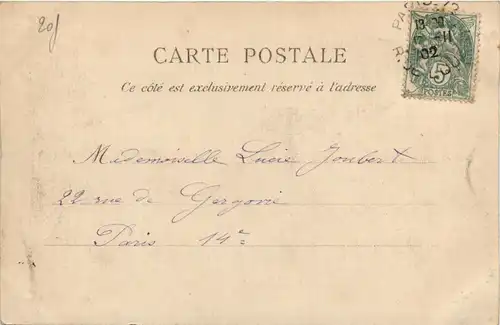 20f
CARTE POSTALE
Ce côté est exclusivement réservé à l'adresse
PARIS
02
5
POSTES
Mademoiselle Lucie Joubert
22 rue de Gergovie
Paris 14e